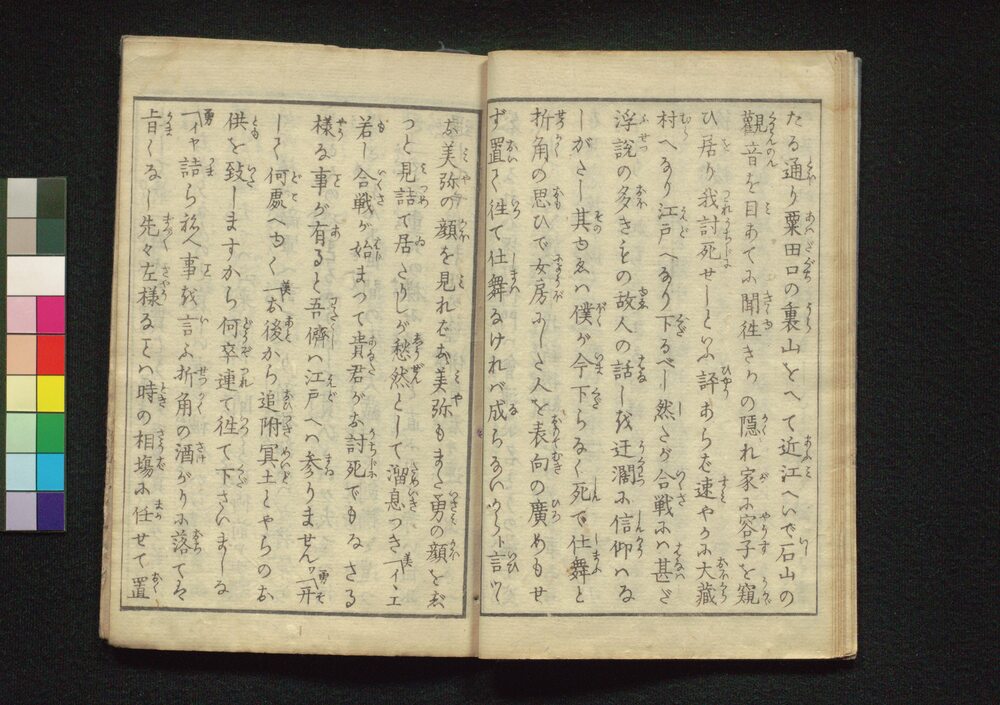 たる通り粟田口の裏山をへて近江へいで石山の
觀音を目あてに聞徃きわの隠れ家に容子を窺
ひ居り我討死せしといふ評あらば速やかに大藏
村へなり江戸へなり下るべし然だが合戦にハ甚だ
浮説の多きもの故人の話しを迂濶に信仰ハな
しがたし其ゆゑハ僕が今下らなく死で仕舞と
折角の思ひで女房にした人を表向の廣めもせ
ず置て徃て仕舞なければ成らないからト言ツヽ
お美弥の顔を見ればお美弥もまた勇の顔をぢ
つと見詰て居たりしが愁然として溜息つき美「イヽエ
若し合戦が始まつて貴君がお討死でもなさる
様な事が有ると吾儕ハ江戸へハ参りません勇「ソ
して何處へゆく美「お後から追附冥土とやらのお
供を致しますから何卒連て徃て下さいましな
勇「イヤ詰らねへ事を言ふ折角の酒がりに落てちや
旨くなし先々左様なことハ時の相塲に任せて置